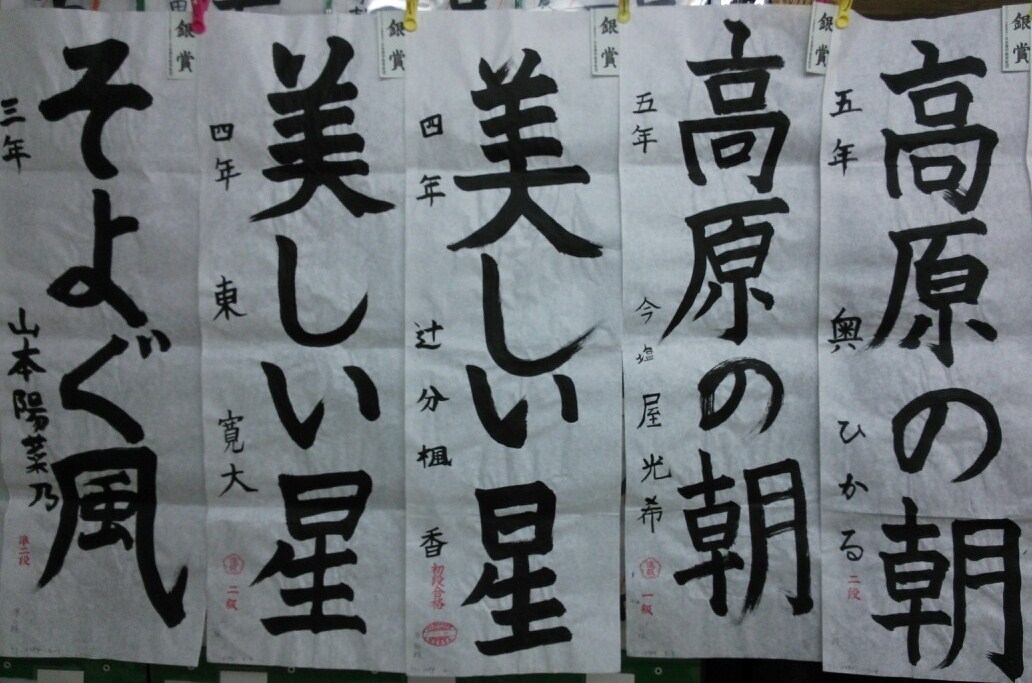 銀賞
高原の朝
五年 奥 ひかる
二段
銀賞
高原の朝
五年 今塩屋光希
一級
銀賞
美しい星
四年 辻 分楓 香
初段合格
銀賞
美しい星
四年 東 寛大
二級
銀賞
そよぐ風
三年 山本陽菜乃
準二段